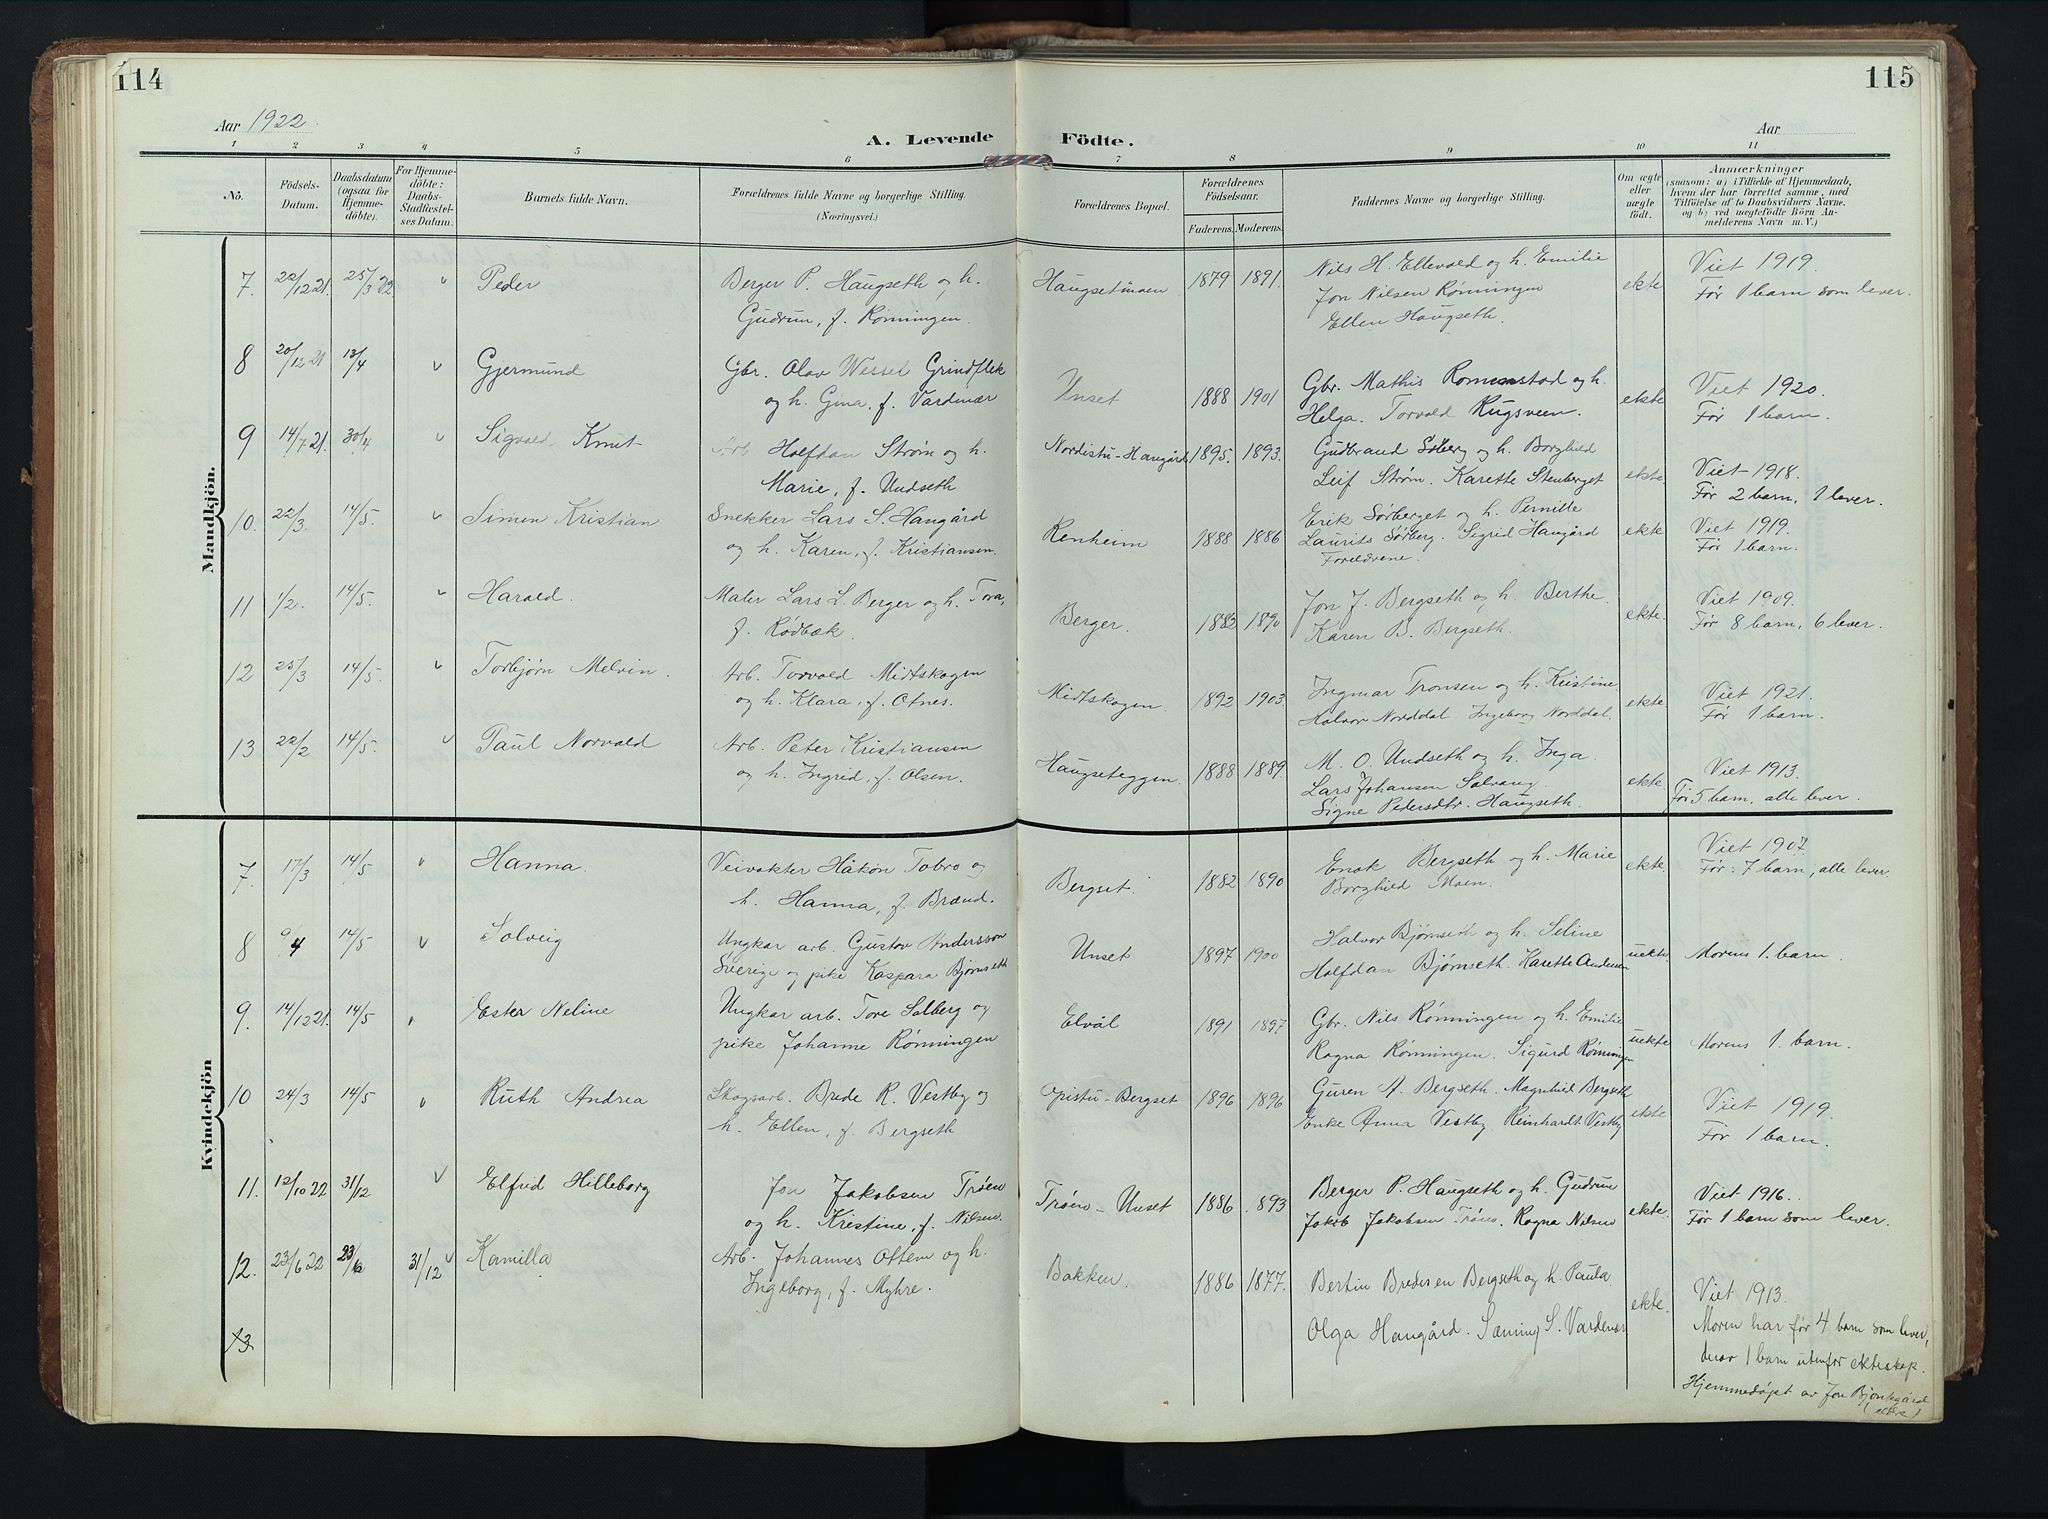 114
115
Aar 1922.
A. Levende Födte.
Aar
1 2 3 4 5 6 7 8 9 10 11
No.
Födsels-Datum.
Daabsdatum (ogsaa for Hjemmedöbte).
For Hjemmedöbte: Daabs-Stadfæstelses Datum.
Barnets fulde Navn.
Forældrenes fulde Navne og borgerlige Stilling.
(Næringsvei.)
Forældrenes Bopæl.
Forældrenes Födselsaar.
Faderens. Moderens.
Faddernes Navne og borgerlige Stilling.
Om ægte eller uægte födt.
Anmærkninger
(saasom: a) i Tilfælde af Hjemmedaab,
hvem der har forrettet samme, med
Tilföielse af to Daabsvidners Navne,
og b) ved uægtefödte Börn An-
melderens Navn m. V.)
Mandkjön.
7. 22/12 21. 25/3 22 Peder Berger P. Haugseth og h. Gudrun, f. Rønningen. Haugsetmoen 1879 1891. Nils H. Ellevold og h. Emilie Jon Nilsen Rønningen Ellen Haugseth. ekte Viet 1919. Før 1 barn som lever.
8 20/12 21 13/4 Gjermund Gbr. Olav Wessel Grindflek og h. Gina, f. Vardenær Unset 1888 1901 Gbr. Mathis Romenstad og h. Helga. Torvald Rugsveen. ekte Viet 1920. Før 1 barn.
9 14/7 21. 30/4 Sigvald Knut Arb Halfdan Strøm og h. Marie, f. Undseth Nordistu-Haugård 1895. 1893. Gudbrand Solberg og h. Borghild Leif Strøm. Karette Stenberget ekte Viet 1918. Før 2 barn, 1 lever.
10. 22/3. 14/5. Simen Kristian Snekker Lars S. Haugård og h. Karen, f. Kristiansen. Renheim 1888 1886 Erik Sørberget og h. Pernille Laurits Sørberg. Sigrid Haugård Foreldrene. ekte Viet 1919. Før 1 barn.
11 1/2. 14/5. Harald. Maler Lars L. Berger og h. Tora, f. Rødbæk. Berger. 1882 1890 Jon J. Bergseth og h. Berthe. Karen B. Bergseth. ekte. Viet 1909. Før 8 barn, 6 lever.
12 25/3 14/5. Torbjørn Melvin. Arb. Torvald Midtskogen og h. Klara, f. Otnes. Midtskogen. 1892 1903. Ingmar Tronsen og h. Kristine Halvor Norddal Ingeborg Norddal. ekte. Viet 1921. Før 1 barn.
13 22/2 14/5. Paul Norvald Arb. Peter Kristiansen og h. Ingrid, f. Olsen. Haugseteggen. 1888 1889. M. O. Undseth og h. Inga. Lars Johansen Solvang. Signe Pedersdtr. Haugseth. ekte. Viet 1913. Før 5 barn, alle lever.
Kvindekjön
7. 17/3 14/5 Hanna. Veivokter Håkon Tobro og h. Hanna, f. Brænd. Bergset. 1882 1890 Enok Bergseth og h. Marie Borghild Moen. ekte. Viet 1907. Før: 7 barn, alle lever.
8 /4 14/5 Solveig Ungkar arb. Gustav Andersson Sverige og pike Kaspara Bjørnseth Unset 1897 1900 Halvor Bjørnseth og h. Seline Halfdan Bjørnseth. Karette Andersen uekte. Morens 1. barn.
9. 14/12 21. 14/5 Ester Neline Ungkar arb. Tore Solberg og pike Johanne Rønningen Elvål 1891 1897 Gbr. Nils Rønningen og h. Emilie Ragna Rønningen. Sigurd Rønningen uekte Morens 1. barn.
10 24/3 14/5 Ruth Andrea Skogsarb. Brede R. Vestby og h. Ellen, f. Bergseth Opistu-Bergset 1896 1896 Guren A. Bergseth. Magnhild Bergseth Enke Anna Vestby. Reinhardt Vestby ekte Viet 1919. Før 1 barn.
11. 12/10 22 31/12 Elfrid Hilleborg Jon Jakobsen Trøen og h. Kristine, f. Nilsen. Trøen-Unset 1886 893 Berger P. Haugseth og h. Gudrun Jakob Jakobsen Trøen. Ragna Nilsen ekte. Viet 1916. Før 1 barn som lever.
12. 23/6 22 23/6 31/12 Kamilla Arb. Johannes Ottem og h. Ingeborg, f. Myhre. Bakken. 1886 1877. Bertin Bredesen Bergseth og h. Paula. Olga Haugård. Sæming S. Vardenær ekte. Viet 1913. Moren har før 4 barn som lever, derav 1 barn utenfor ekteskap. Hjemmedøpt av Jon
13